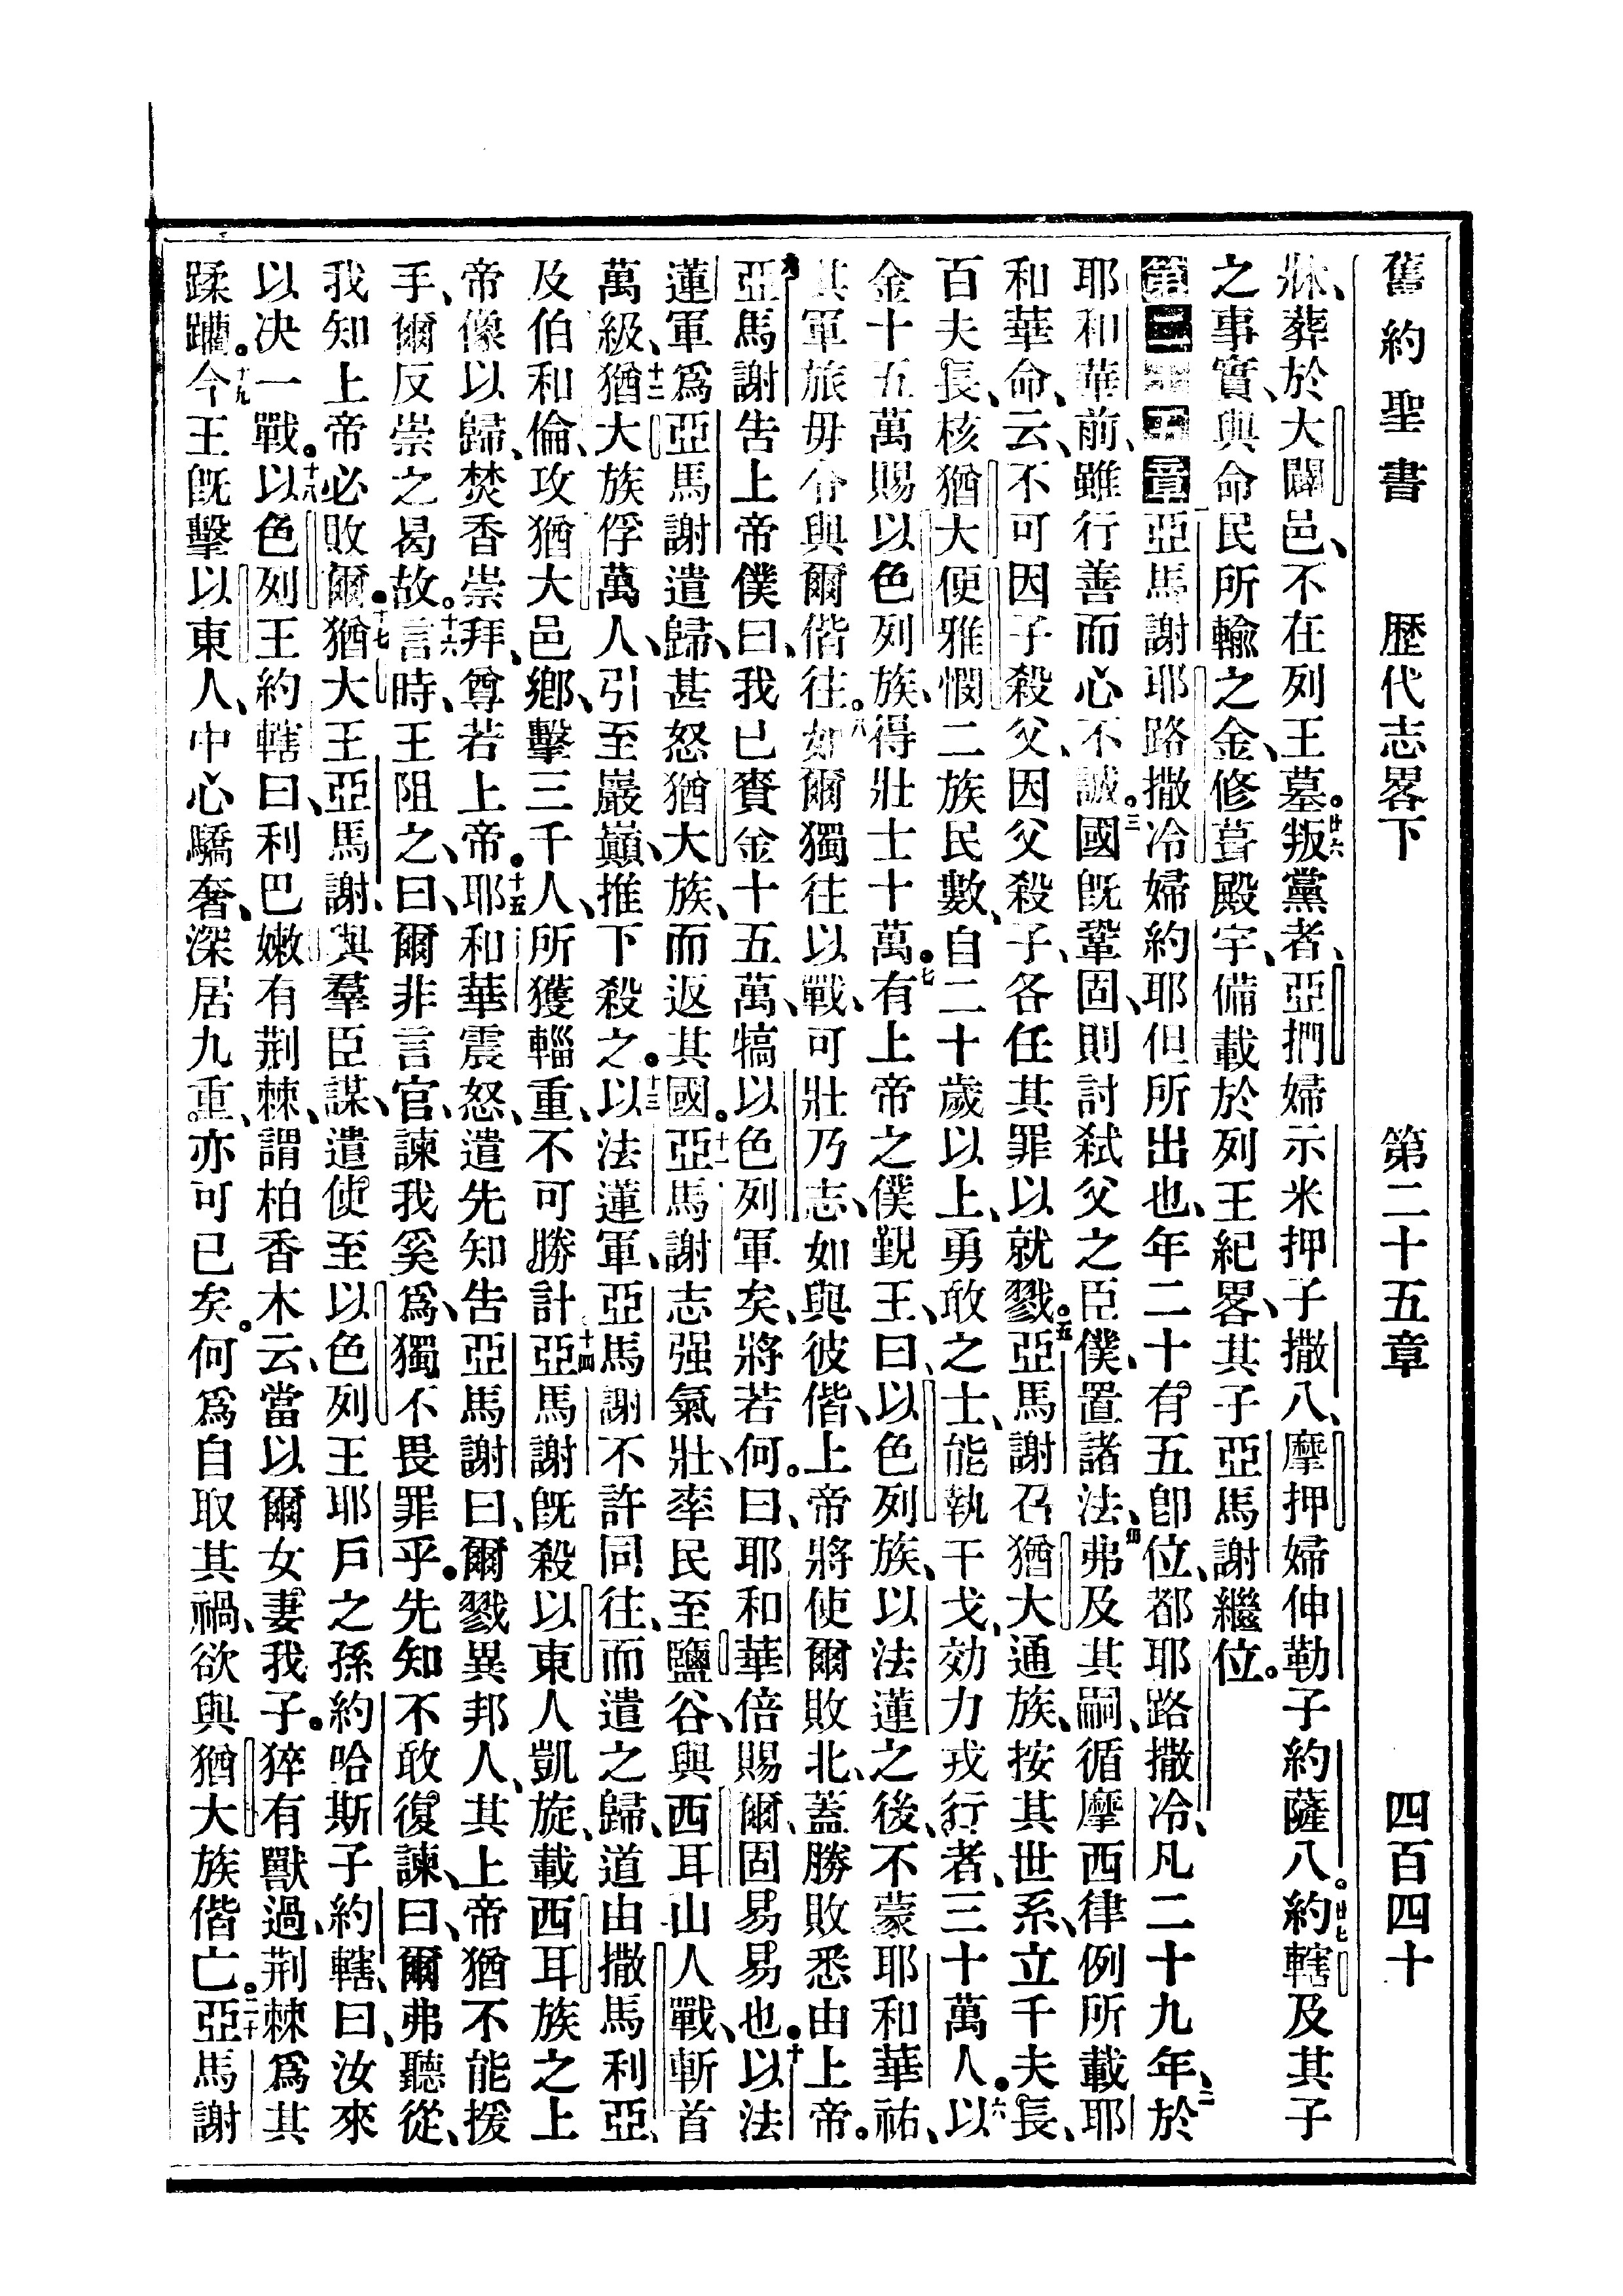 舊約聖書 歷代志畧下 第二十五章 四百四十
牀、葬於大闢邑、不在列王墓。廿六叛黨者、亞捫婦示米押子撒八、摩押婦伸勒子約薩八。廿七約轄及其子
之事實、與命民所輸之金、修葺殿宇、備載於列王紀畧、其子亞馬謝繼位。
第二十五章 一亞馬謝耶路撒冷婦約耶但所出也、年二十有五卽位、都耶路撒冷、凡二十九年、二於
耶和華前、雖行善而心不誠。三國旣鞏固、則討弑父之臣僕、置諸法、四弗及其嗣、循摩西律例所載耶
和華命、云、不可因子殺父、因父殺子、各任其罪以就戮。五亞馬謝召猶大通族、按其世系、立千夫長、
百夫長、核猶大便雅憫二族民數、自二十歲以上、勇敢之士、能執干戈、効力戎行者、三十萬人。六以
金十五萬賜以色列族、得壯士十萬。七有上帝之僕覲王、曰、以色列族、以法蓮之後、不蒙耶和華祐、
其軍旅毋令與爾偕往。八如爾獨往以戰、可壯乃志、如與彼偕、上帝將使爾敗北、蓋勝敗悉由上帝。
九亞馬謝告上帝僕曰、我已賚金十五萬、犒以色列軍矣、將若何。曰、耶和華倍賜爾、固易易也。十以法
蓮軍爲亞馬謝遣歸、甚怒猶大族、而返其國。十一亞馬謝志强氣壯、率民至鹽谷、與西耳山人戰、斬首
萬級、十二猶大族俘萬人、引至巖巔、推下殺之。十三以法蓮軍、亞馬謝不許同往、而遣之歸、道由撒馬利亞、
及伯和倫、攻猶大邑鄉、擊三千人、所獲輜重、不可勝計、十四亞馬謝旣殺以東人凱旋、載西耳族之上
帝像以歸、焚香崇拜、尊若上帝。十五耶和華震怒、遣先知告亞馬謝曰、爾戮異邦人、其上帝猶不能援
手、爾反崇之曷故。十六言時、王阻之、曰、爾非言官、諫我奚爲、獨不畏罪乎。先知不敢復諫、曰、爾弗聽從、
我知上帝必敗爾。十七猶大王亞馬謝、與羣臣謀、遣使至以色列王耶戶之孫約哈斯子約轄、曰、汝來
以决一戰。十八以色列王約轄曰、利巴嫩有荆棘、謂柏香木云、當以爾女妻我子。猝有獸過、荆棘爲其
蹂躪。十九今王旣擊以東人、中心驕奢、深居九重、亦可已矣。何爲自取其禍、欲與猶大族偕亡。二十亞馬謝